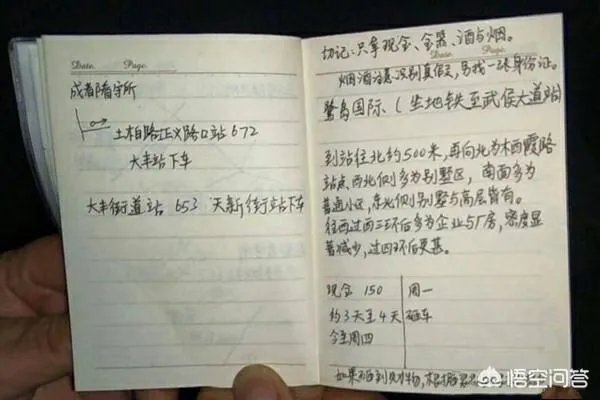 Date. Page.
成都看守所
土柏路正义路口站 672
大丰站下车
大丰街道站 653 天新街站下车
切记:只拿现金、金器、酒与烟。
Date. Page.
烟酒注意识别真假,另找一张身份证。
鹭岛国际、(坐地铁至武侯大道站)
到站往北约500米,再向北为木西霞路
站点、西北侧多为别墅区,南面多为
普通小区,东北侧别墅与高层皆有。
往西过西三环后多为企业与厂房,密度显
著减少,过四环后更甚。
现金 150 周一
约3天至4天 砸车
今至周四
如果
悟空问答